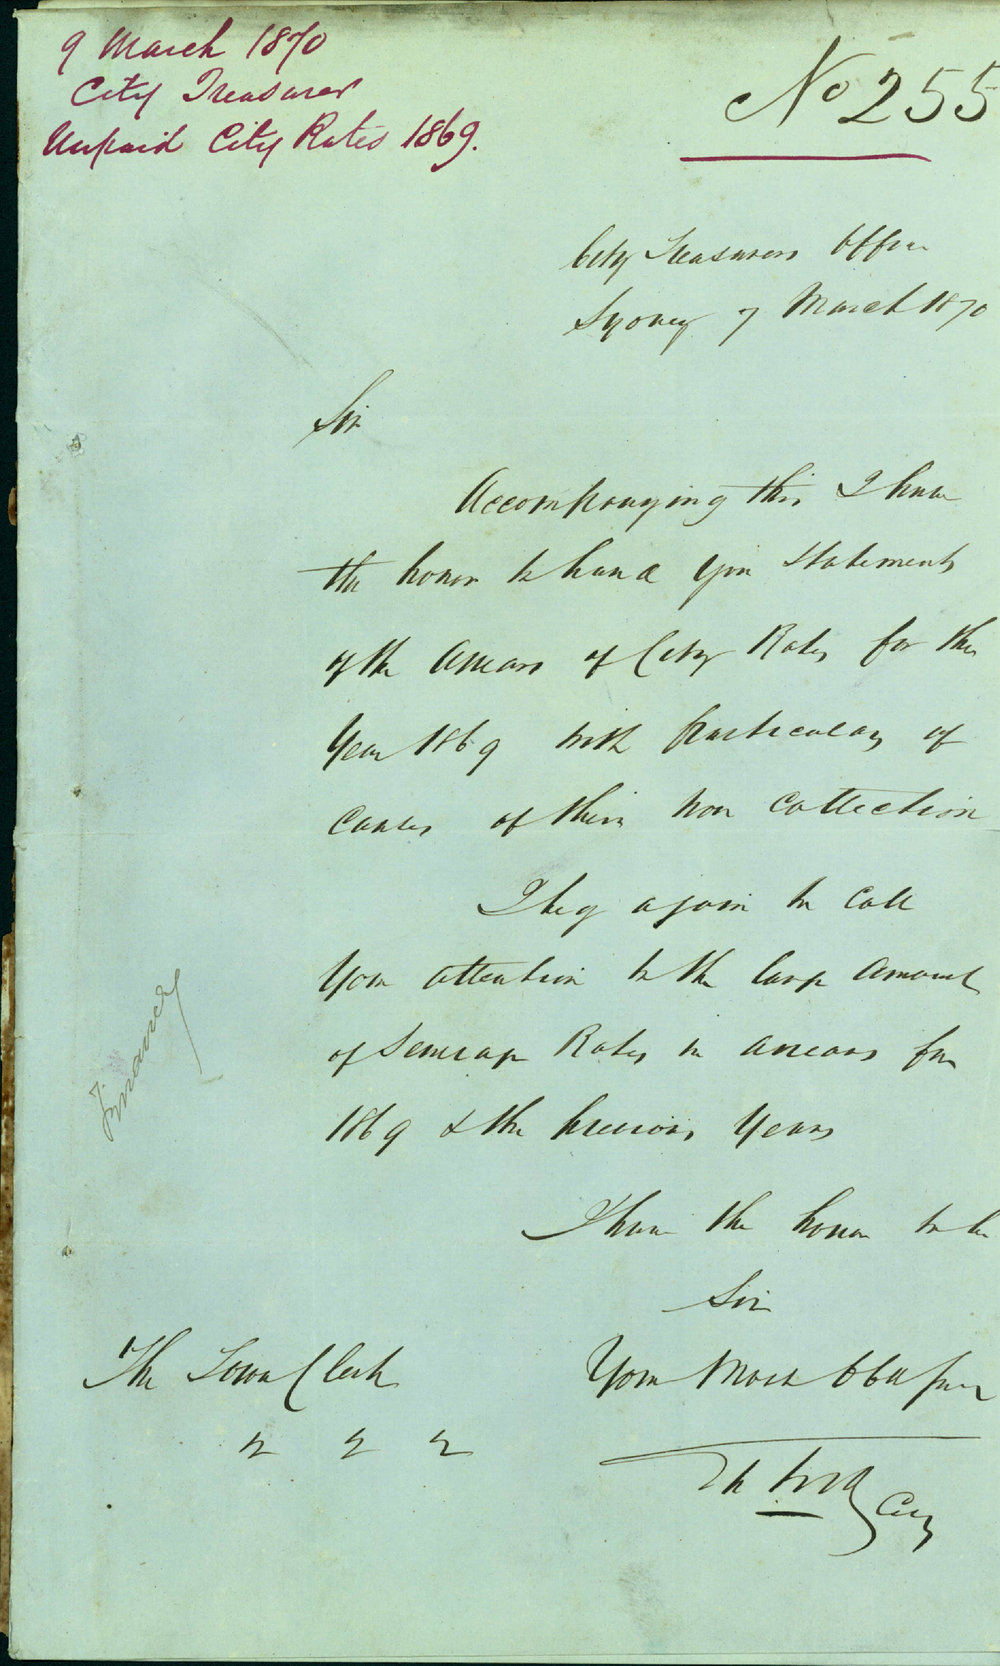 9 March 1870
City Treasurer
Unpaid City Rates 1869.
No 255
City Treasurers Office
Sydney 7 March 1870
Sir
Accompanying this I have
the honor to hand you Statements
of the Arrears of City Rates for the
Year 1869 with particulars of
causes of their non Collection
I beg again to call
your attention to the large amount
of Sewerage Rates in arrears for
1869 & the previous years
Finance
I have the honor to be
Sir
Your Most Obt Servt
The Town Clerk
City